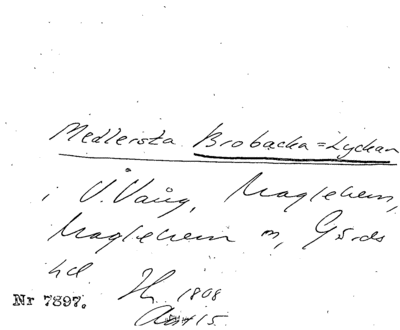 Medlersta Brobacka=Lyckan
i Ö. Vång, Maglehem,
Maglehem sn, Gärds
hd
Nr 7897. 1808
15.